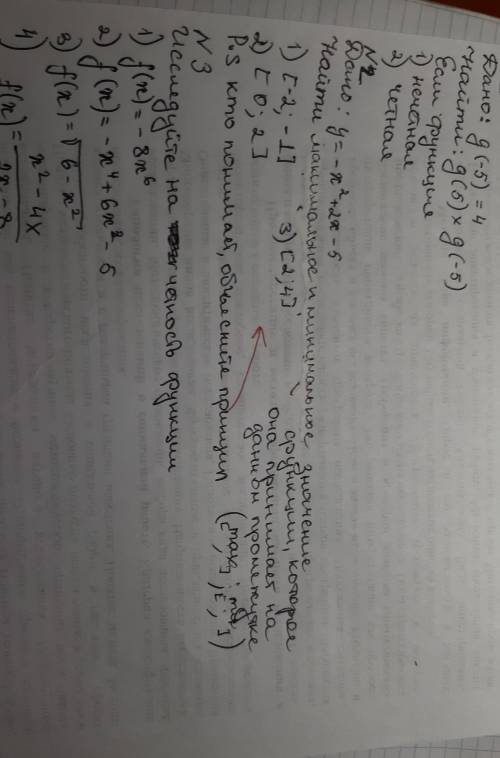 Дано: g(-5) = 4
Найти: g(5) × g(-5)
Если функция
1) нечетная
2) четная
N2
Дано: y = -x² + 2x - 5
Найти максимальное и минимальное значение
функции, которое
она принимает на
данном промежутке
1) [-2; -1]
3) [2; 4]
2) [0; 2]
P.S кто понимает, объясните принцип
N3
Исследуйте на четность функции
1) f(x) = -8x⁶
2) f(x) = -x⁴ + 6x² - 6
3) f(x) = √6 - x²
4) f(x) = x² - 4x